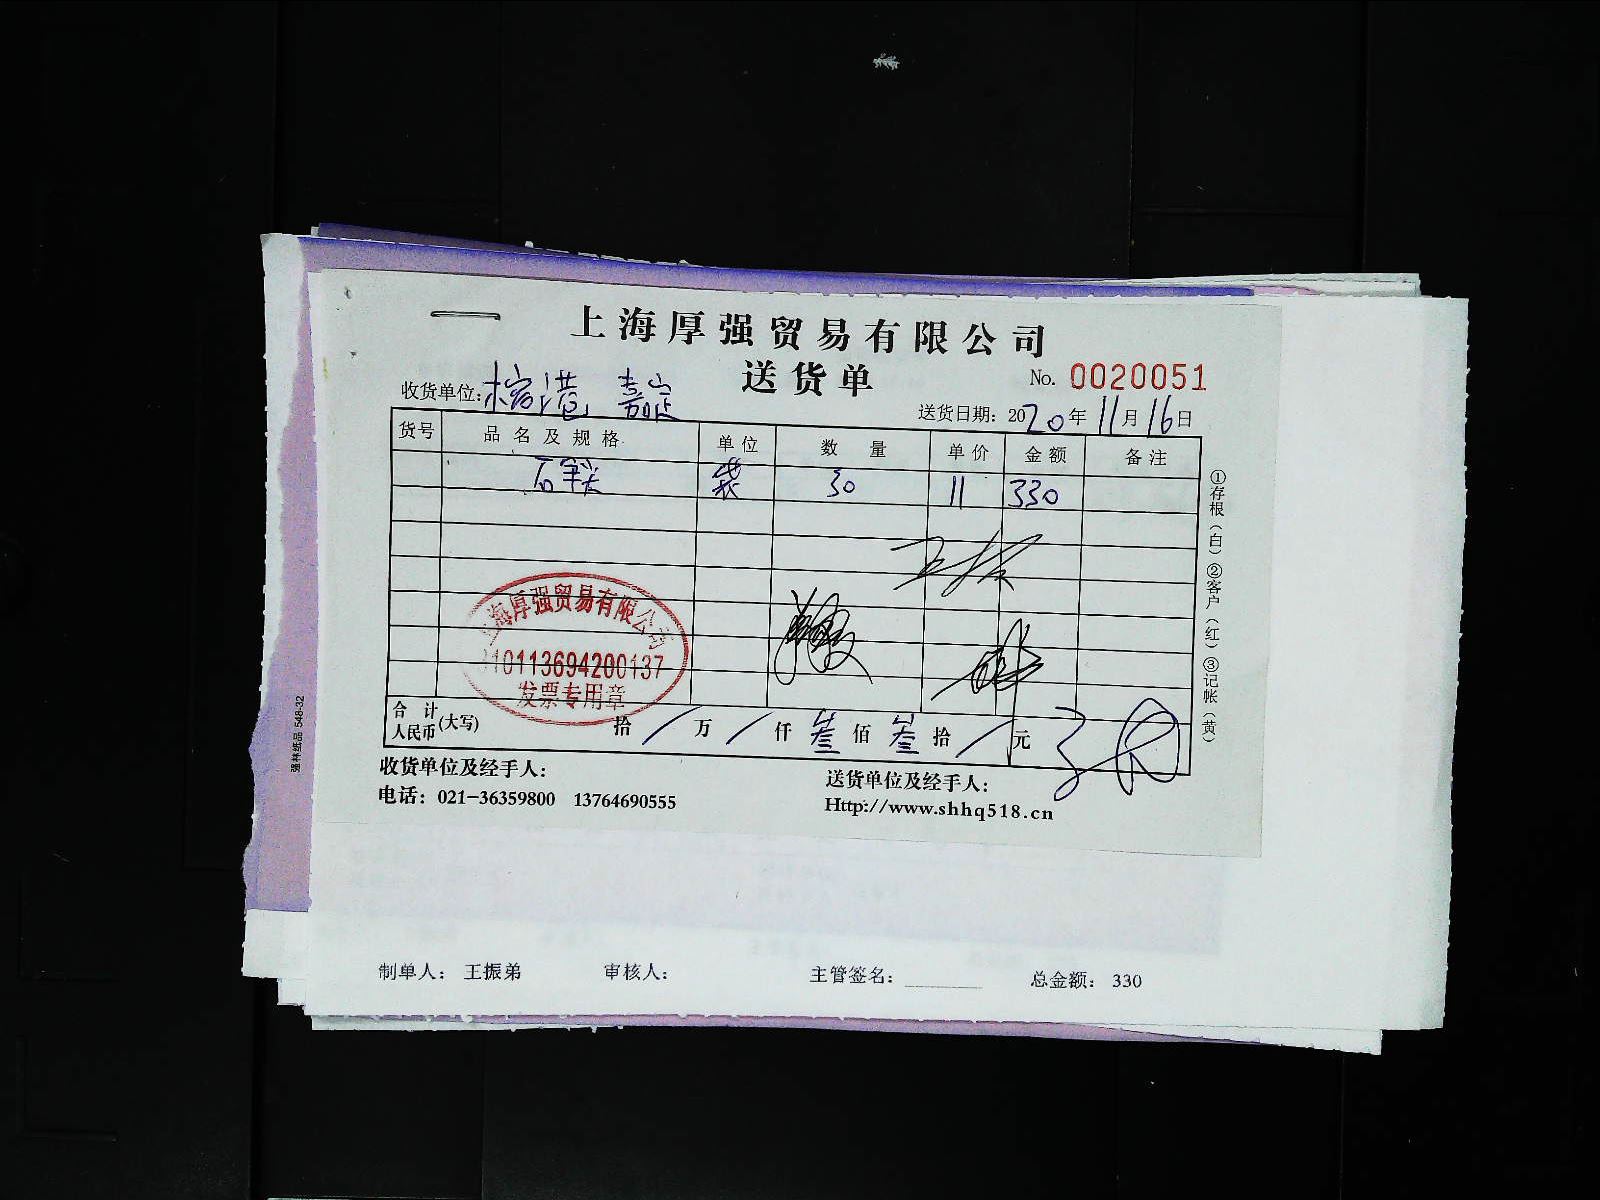 上海厚强贸易有限公司
送货单
No. 0020051
收货单位: 榕港 嘉定
送货日期: 2020年11月16日
货号 品名及规格 单位 数量 单价 金额 备注
石 袋 30 11 330
上海厚强贸易有限公司
310113694200137
发票专用章
合计人民币(大写) 拾 / 万 / 仟 叁 佰 叁 拾 / 元
收货单位及经手人:
送货单位及经手人:
电话: 021-36359800 13764690555
Http://www.shhq518.cn
①存根(白)②客户(红)③记帐(黄)
强林纸品 548-32
制单人: 王振弟 审核人: 主管签名: 总金额: 330